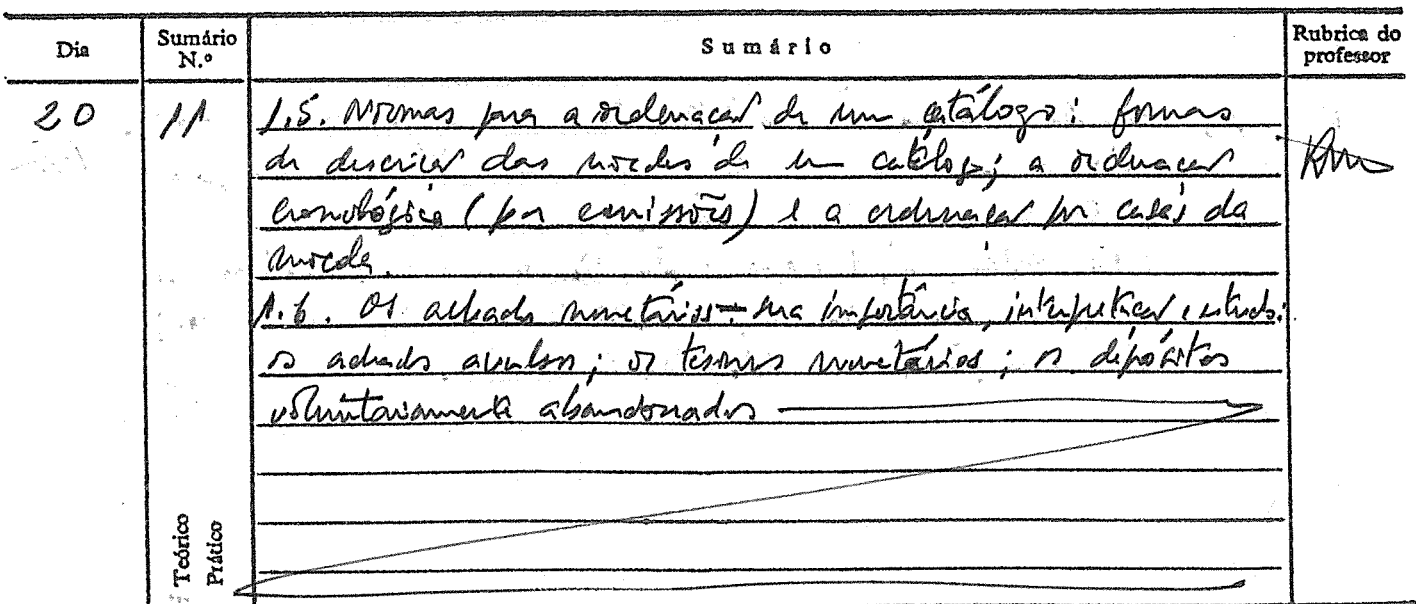 Dia
Sumário N.º
Sumário
Rubrica do professor
20
11
1.5. Normas para a ordenação de um catálogo: formas
de descrição das moedas de um catálogo; a ordenação
cronológica (por emissões) e a ordenação por casas da
moeda.
1.6. Os achados monetários - sua importância, interpretação e estudo:
os achados avulsos; os tesouros monetários; os depósitos
voluntariamente abandonados
Teórico
Prático